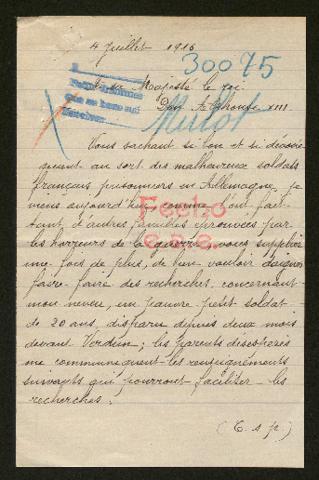 4 Juillet 1916
30075
A sa Majesté le roi
Don Alphonse XIII
Mulot
Vous sachant si bon et si dévoué
quant au sort des malheureux soldats
français prisonniers en Allemagne, je
viens aujourd'hui, comme l'ont fait
tant d'autres familles éprouvées par
les horreurs de la guerre, vous supplier
une fois de plus, de bien vouloir daigner
faire faire des recherches concernant
mon neveu, un pauvre petit soldat
de 20 ans, disparu depuis deux mois
devant Verdun; les parents désespérés
me communiquent les renseignements
suivants qui pourront faciliter les
recherches.
Fecho
(T. s. p.)